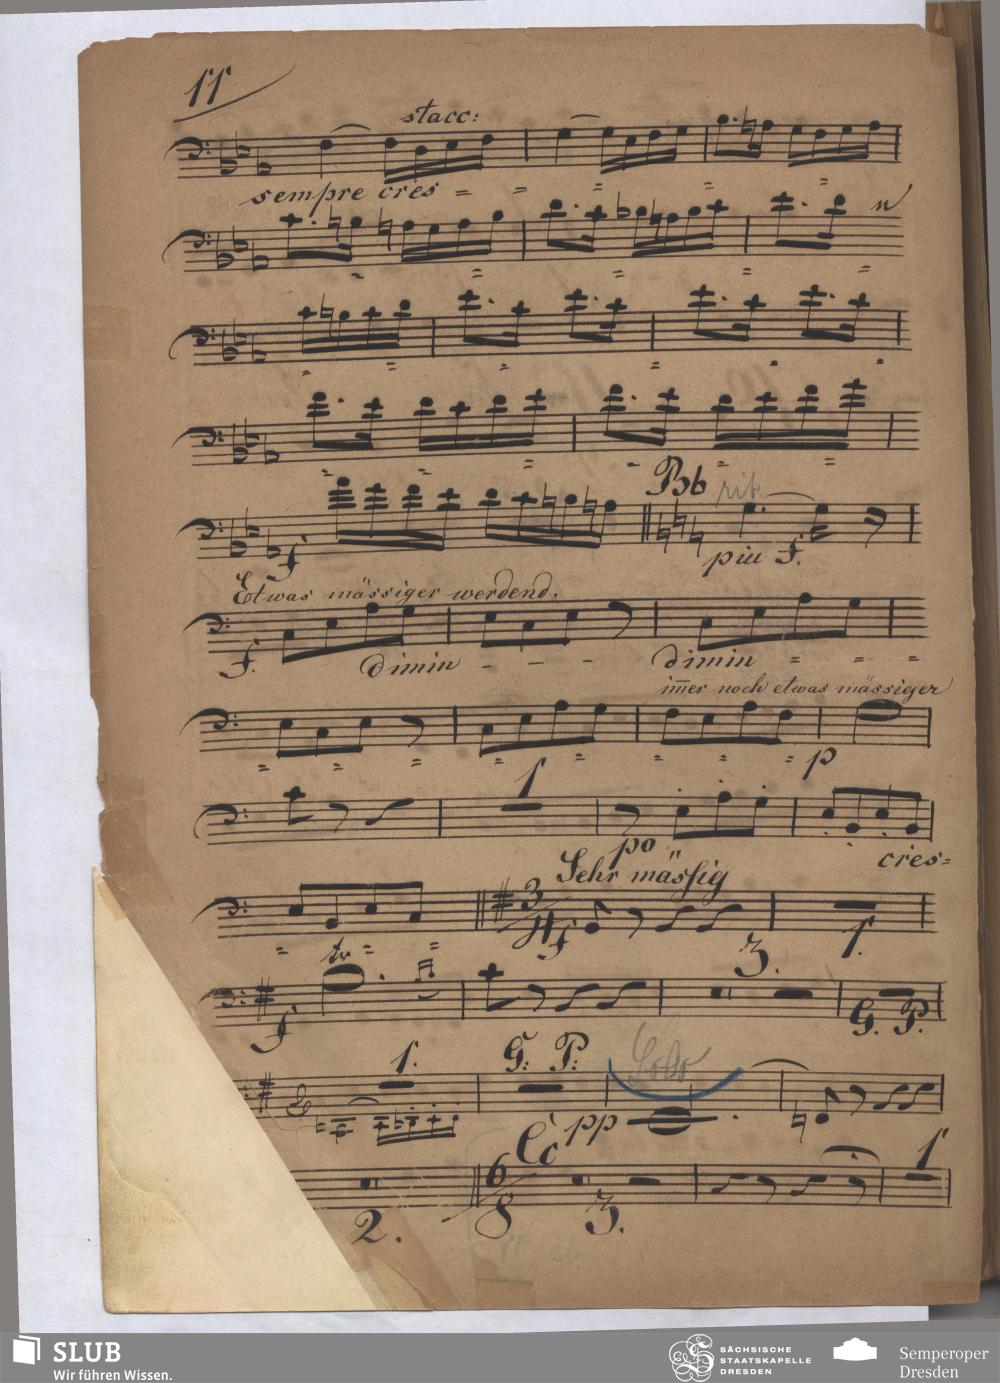 11
stacc:
sempre cres
Bb rit
f
piu f.
Etwas mässiger werdend.
f.
dimin
dimin
immer noch etwas mässiger
p
1
po
cres=
Sehr mässig
3
4
f
3.
1.
tr
f
G. P.
1.
G. P.
Solo
pp
Cc
6
8
2.
3.
1
SLUB
Wir führen Wissen.
SÄCHSISCHE
STAATSKAPELLE
DRESDEN
Semperoper
Dresden